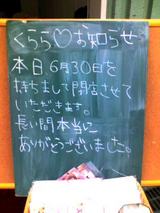 くらら♡お知らせ
本日6月30日を
持ちまして閉店させて
いただきます。
長い間本当に
ありがとうございました。